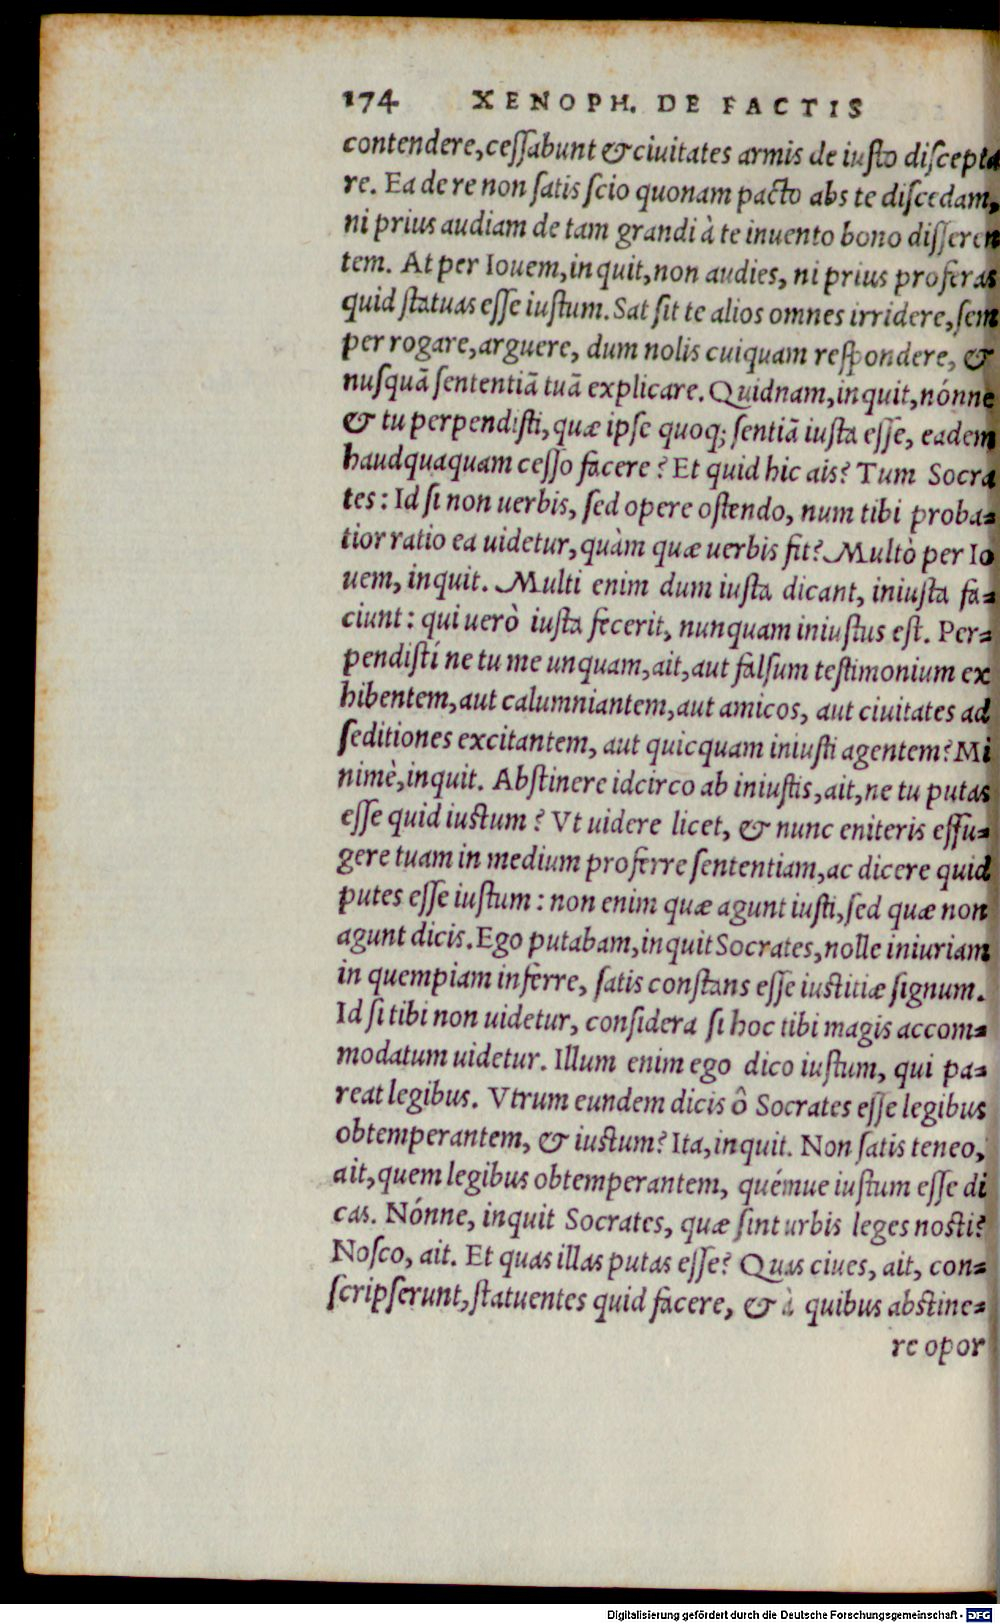 174 XENOPH. DE FACTIS
contendere,ceſſabunt & ciuitates armis de iuſto diſcepta
re. Ea de re non ſatis ſcio quonam pacto abs te diſcedam,
ni prius audiam de tam grandi à te inuento bono diſſeren
tem. At per Iouem,inquit,non audies, ni prius proferas
quid ſtatuas eſſe iuſtum. Sat ſit te alios omnes irridere,ſem
per rogare,arguere, dum nolis cuiquam reſpondere, &
nuſquã ſententiã tuã explicare. Quidnam,inquit,nónne
& tu perpendiſti,quæ ipſe quoq; ſentiã iuſta eſſe, eadem
haudquaquam ceſſo facere? Et quid hic ais? Tum Socra
tes: Id ſi non uerbis, ſed opere oſtendo, num tibi proba=
tior ratio ea uidetur,quàm quæ uerbis fit? Multò per Io
uem, inquit. Multi enim dum iuſta dicant, iniuſta fa=
ciunt: qui uerò iuſta fecerit, nunquam iniuſtus eſt. Per=
pendiſtí ne tu me unquam,ait,aut falſum teſtimonium ex
hibentem,aut calumniantem,aut amicos, aut ciuitates ad
ſeditiones excitantem, aut quicquam iniuſti agentem? Mi
nimè,inquit. Abſtinere idcirco ab iniuſtis,ait,ne tu putas
eſſe quid iuſtum? Vt uidere licet, & nunc eniteris effu=
gere tuam in medium proferre ſententiam,ac dicere quid
putes eſſe iuſtum: non enim quæ agunt iuſti,ſed quæ non
agunt dicis. Ego putabam,inquit Socrates,nolle iniuriam
in quempiam inferre, ſatis conſtans eſſe iuſtitiæ ſignum.
Id ſi tibi non uidetur, conſidera ſi hoc tibi magis accom=
modatum uidetur. Illum enim ego dico iuſtum, qui pa=
reat legibus. Vtrum eundem dicis ô Socrates eſſe legibus
obtemperantem, & iuſtum? Ita,inquit. Non ſatis teneo,
ait,quem legibus obtemperantem, quémue iuſtum eſſe di
cas. Nónne, inquit Socrates, quæ ſint urbis leges noſti?
Noſco, ait. Et quas illas putas eſſe? Quas ciues, ait, con=
ſcripſerunt,ſtatuentes quid facere, & à quibus abſtine=
re opor
Digitalisierung gefördert durch die Deutsche Forschungsgemeinschaft - DFG